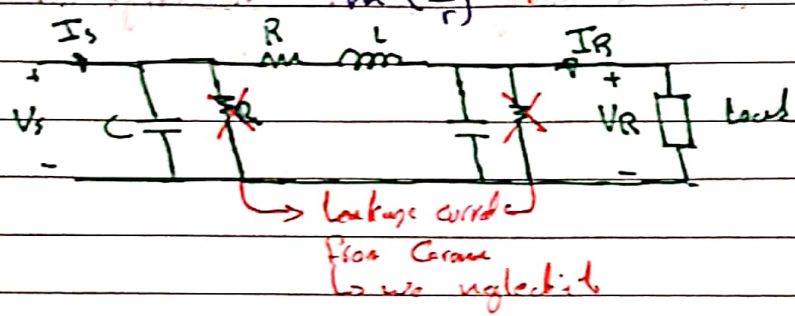 Is R L IR
+ +
Vs C R VR Load
- -
Leakage current
from Corona
↳ we neglect it